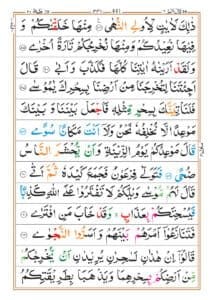 ذٰلِكَ لَاٰيٰتٍ لِّاُولِي النُّهٰى ۝ مِنْهَا خَلَقْنٰكُمْ وَ
فِيْهَا نُعِيْدُكُمْ وَمِنْهَا نُخْرِجُكُمْ تَارَةً اُخْرٰى ۝
وَلَقَدْ اَرَيْنٰهُ اٰيٰتِنَا كُلَّهَا فَكَذَّبَ وَاَبٰى ۝ قَالَ
اَجِئْتَنَا لِتُخْرِجَنَا مِنْ اَرْضِنَا بِسِحْرِكَ يٰمُوْسٰى ۝
فَلَنَاْتِيَنَّكَ بِسِحْرٍ مِّثْلِهٖ فَاجْعَلْ بَيْنَنَا وَبَيْنَكَ
مَوْعِدًا لَّا نُخْلِفُهٗ نَحْنُ وَلَاۤ اَنْتَ مَكَانًا سُوًى ۝
قَالَ مَوْعِدُكُمْ يَوْمُ الزِّيْنَةِ وَاَنْ يُّحْشَرَ النَّاسُ
ضُحًى ۝ فَتَوَلّٰى فِرْعَوْنُ فَجَمَعَ كَيْدَهٗ ثُمَّ اَتٰى ۝
قَالَ لَهُمْ مُّوْسٰى وَيْلَكُمْ لَا تَفْتَرُوْا عَلَى اللّٰهِ كَذِبًا
فَيُسْحِتَكُمْ بِعَذَابٍ ۚ وَقَدْ خَابَ مَنِ افْتَرٰى ۝
فَتَنَازَعُوْۤا اَمْرَهُمْ بَيْنَهُمْ وَاَسَرُّوا النَّجْوٰى ۝
قَالُوْۤا اِنْ هٰذٰنِ لَسٰحِرٰنِ يُرِيْدٰنِ اَنْ يُّخْرِجٰكُمْ
مِّنْ اَرْضِكُمْ بِسِحْرِهِمَا وَيَذْهَبَا بِطَرِيْقَتِكُمُ